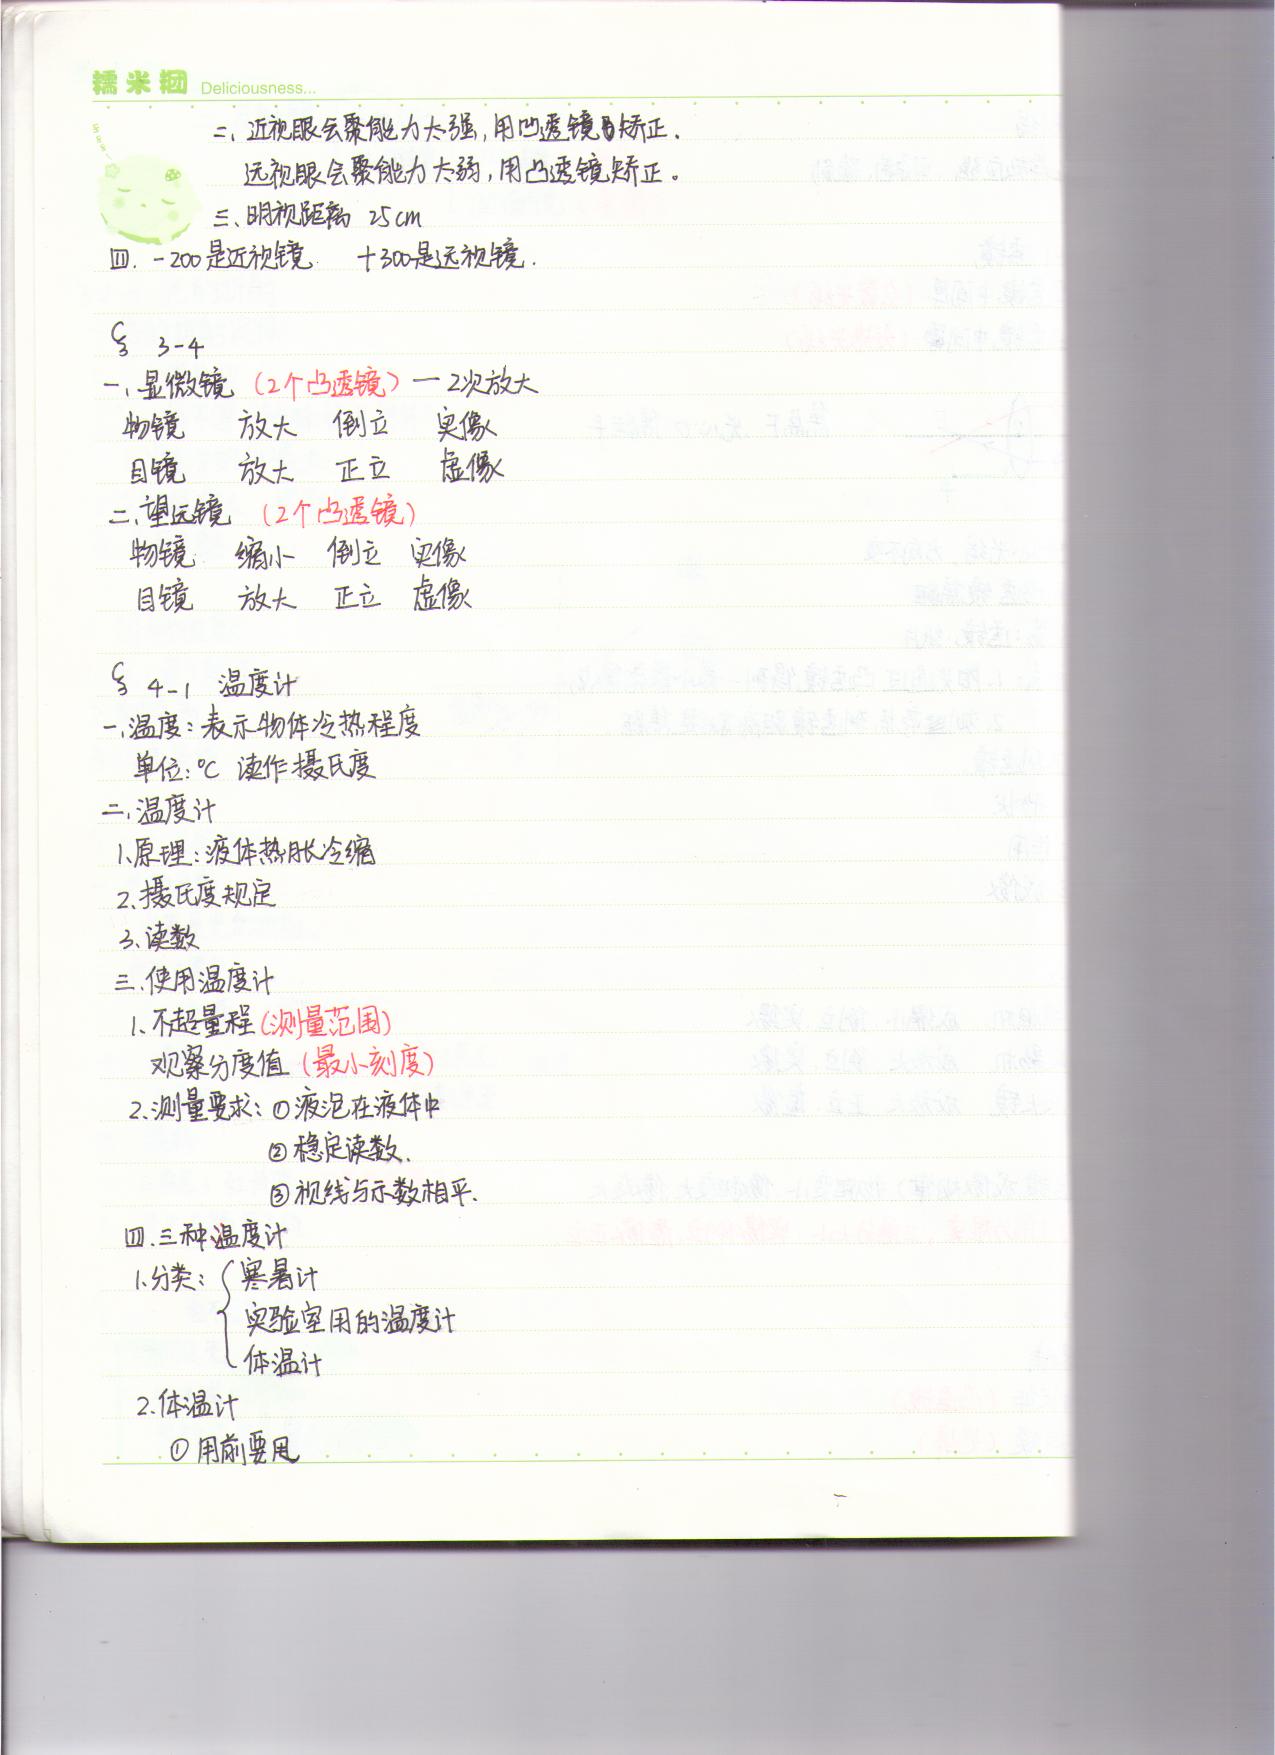 糯米团 Deliciousness...
二、近视眼会聚能力太强,用凹透镜矫正.
远视眼会聚能力太弱,用凸透镜矫正。
三、明视距离 25cm
四. -200是近视镜 +300是远视镜.
§ 3-4
一、显微镜 (2个凸透镜) — 2次放大
物镜 放大 倒立 实像
目镜 放大 正立 虚像
二、望远镜 (2个凸透镜)
物镜 缩小 倒立 实像
目镜 放大 正立 虚像
§ 4-1 温度计
一、温度:表示物体冷热程度
单位:℃ 读作摄氏度
二、温度计
1.原理:液体热胀冷缩
2.摄氏度规定
3.读数
三.使用温度计
1.不超量程(测量范围)
观察分度值(最小刻度)
2.测量要求:①液泡在液体中
②稳定读数.
③视线与示数相平.
四.三种温度计
1.分类:{寒暑计
实验室用的温度计
体温计
2.体温计
①用前要甩